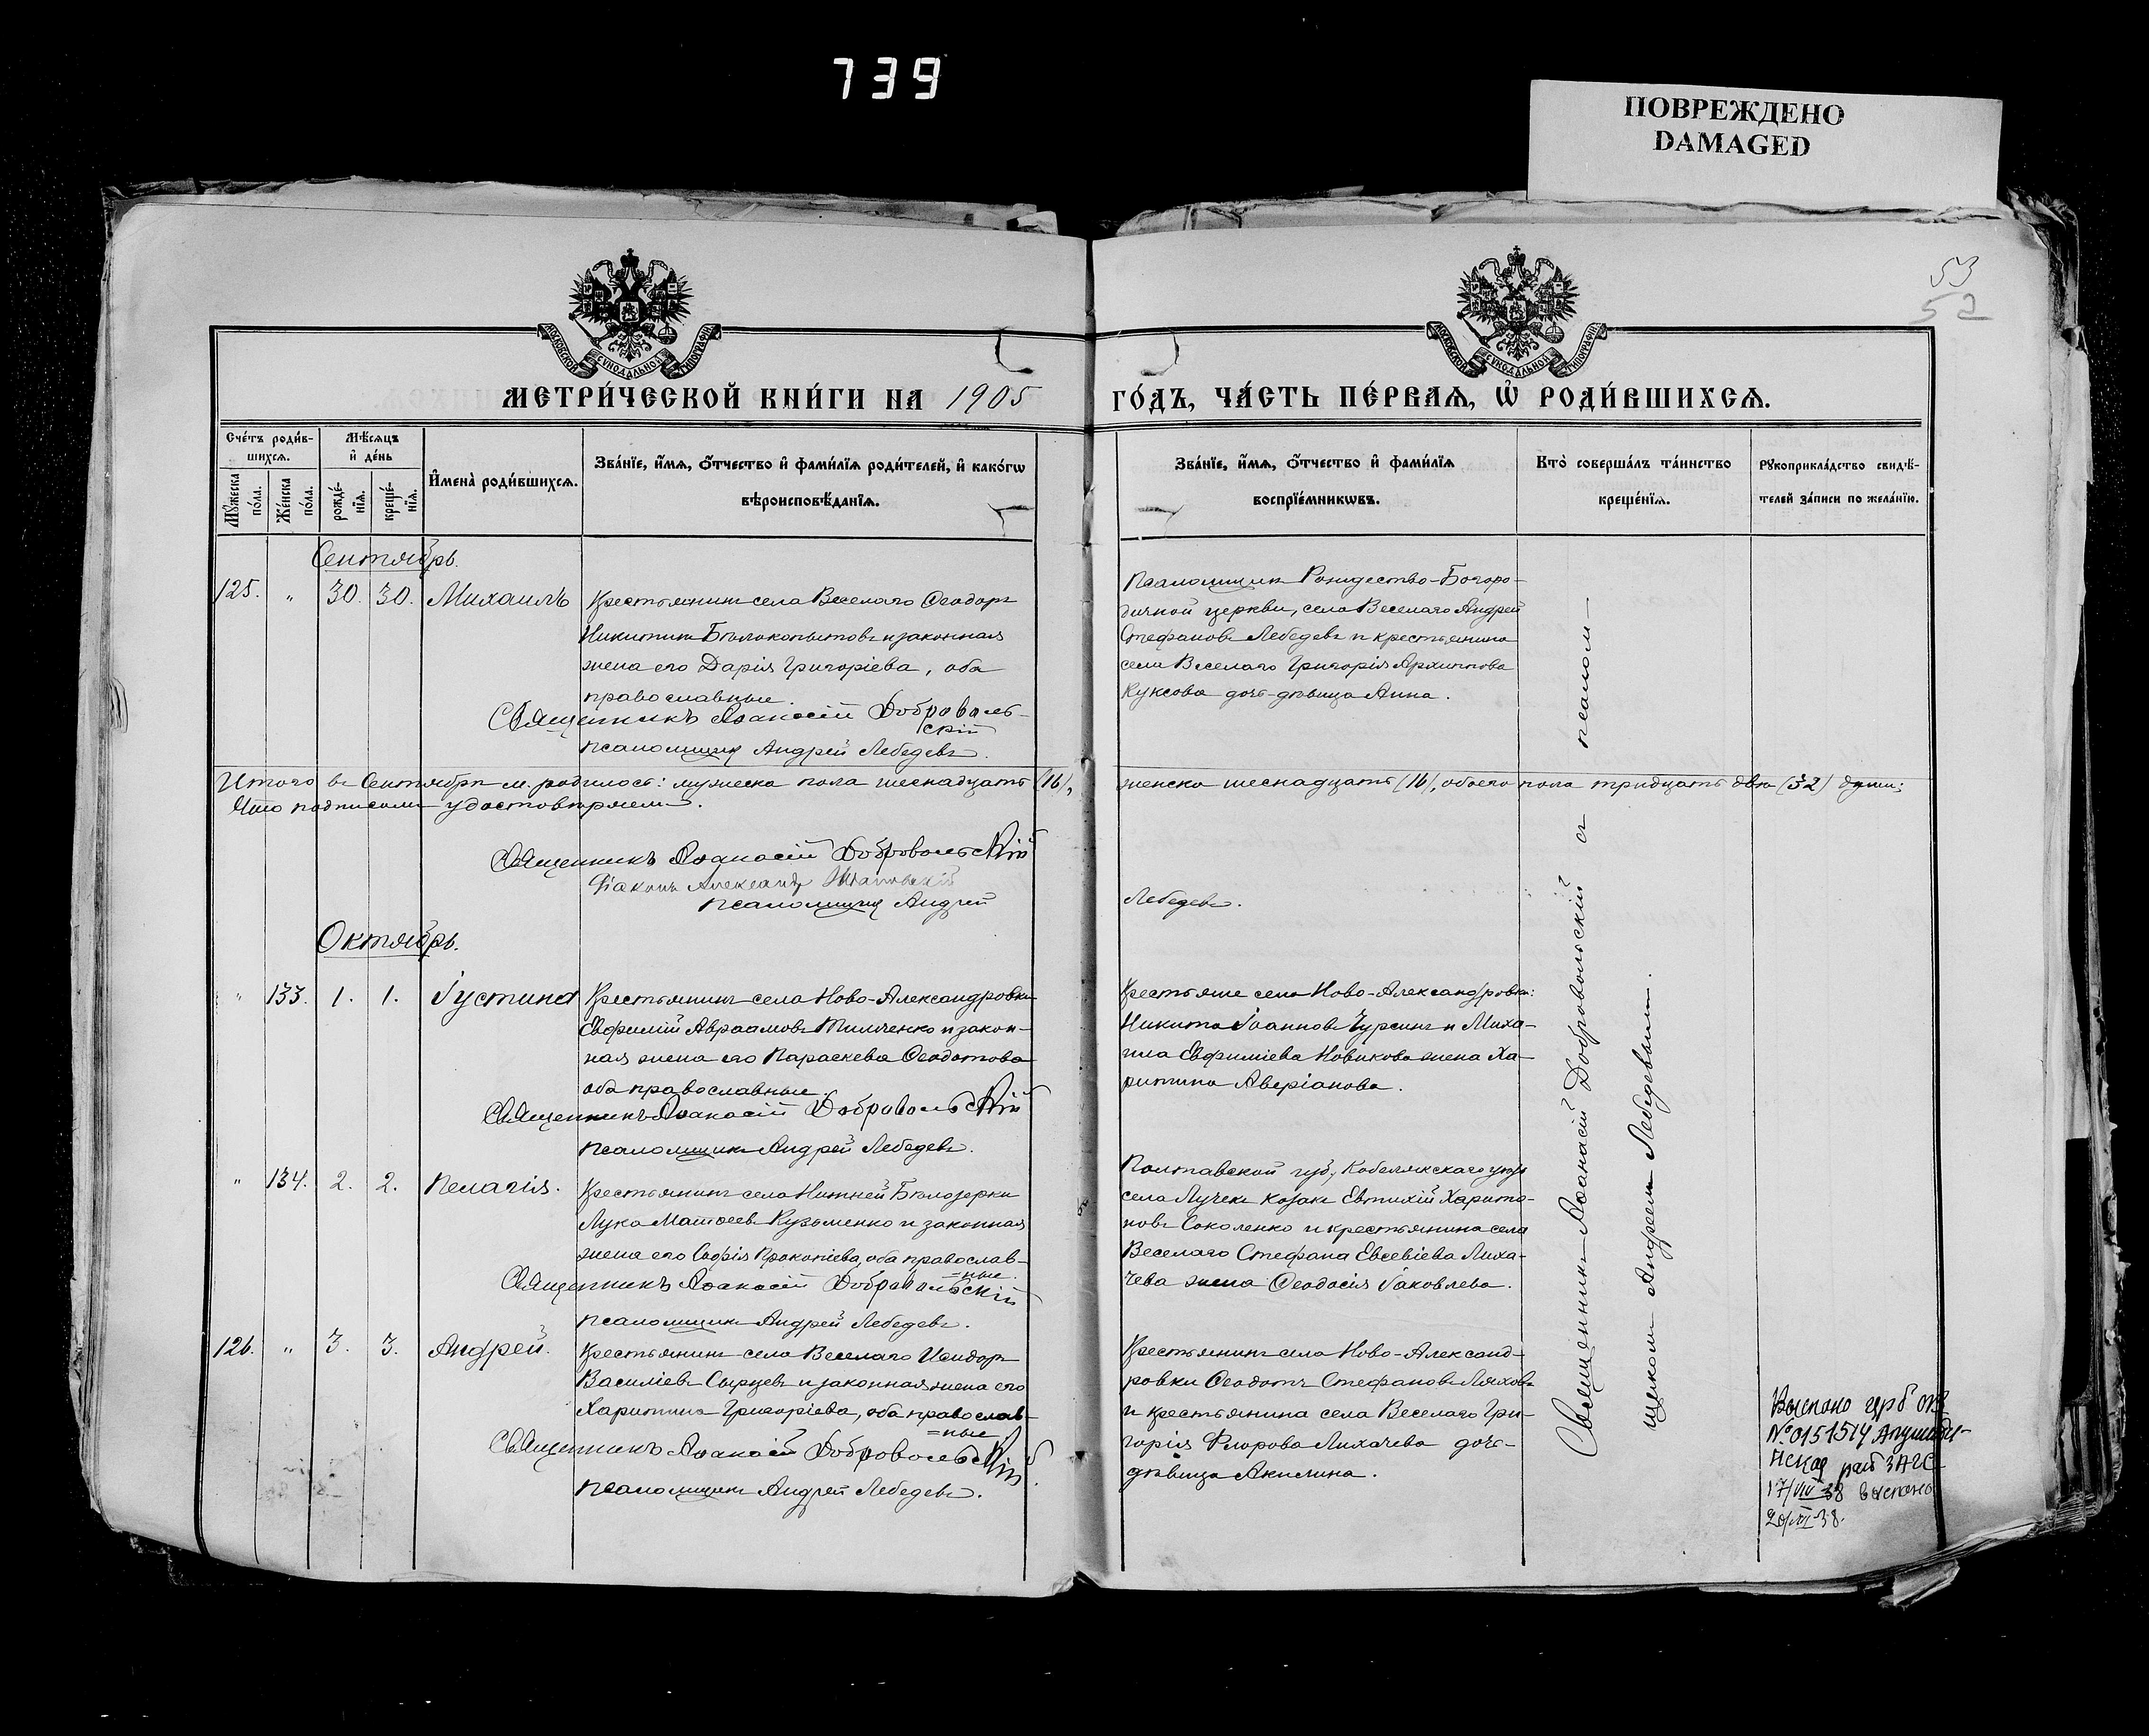 739
ПОВРЕЖДЕНО
DAMAGED
53
52
МОСКОВСКОЙ СѴНОДАЛЬНОЙ ТИПОГРАФІИ
МОСКОВСКОЙ СѴНОДАЛЬНОЙ ТИПОГРАФІИ
МЕТРИ́ЧЕСКОЙ КНИ́ГИ НА 1905 ГО́ДЪ, ЧА́СТЬ ПЕ́РВАѦ, Ѡ҆ РОДИ́ВШИХСѦ.
Сче́тъ роди́в-
шихсѧ.
Мꙋ́жеска по́ла.
Же́нска по́ла.
Мѣ́сѧцъ и҆ де́нь
рожде́-нїѧ.
креще́-нїѧ.
И҆мена̀ роди́вшихсѧ.
Зва́нїе, и҆́мѧ, ѻ҆́тчество и҆ фами́лїѧ роди́телей, и҆ како́гѡ
вѣроисповѣ́данїѧ.
Зва́нїе, и҆́мѧ, ѻ҆́тчество и҆ фами́лїѧ
воспрїе́мникѡвъ.
Кто̀ соверша́лъ та́инство
креще́нїѧ.
Рꙋкоприкла́дство свидѣ́-
телей за́писи по жела́нїю.
Сентябрь.
125. " 30. 30. Михаилъ
Крестьянинъ села Веселаго Ѳеодоръ
Никитинъ Бѣлокопытовъ и законная
жена его Дарія Григоріева, оба
православные.
Священникъ Аѳанасій Доброволь-
скій
псаломщикъ Андрей Лебедевъ.
Псаломщикъ Рождество-Богоро-
дичной церкви, села Веселаго Андрей
Стефановъ Лебедевъ и крестьянина
села Веселаго Григорія Архиппова
Куксова дочь-дѣвица Анна.
Итого въ Сентябрѣ м. родилось: мужеска пола шеснадцать (16), женска шеснадцать (16), обоего пола тридцать двѣ (32) души;
Что подписомъ удостовѣряемъ.
Священникъ Аѳанасій Добровольскій
Діаконъ Александръ
псаломщикъ Андрей Лебедевъ.
Октябрь.
" 133. 1. 1. Іустина
Крестьянинъ села Ново-Александровки
Евфимій Авраамовъ Тимченко и закон-
ная жена его Параскева Ѳеодотова
оба православные.
Священникъ Аѳанасій Добровольскій
псаломщикъ Андрей Лебедевъ.
Крестьяне села Ново-Александровки:
Никита Іоанновъ Чурсинъ и Миха-
ила Евфиміева Новикова жена Ха-
ритина Аверіанова.
" 134. 2. 2. Пелагія.
Крестьянинъ села Нижней Бѣлозерки
Лука Матѳеевъ Кузьменко и законная
жена его Софія Прокопіева, оба православ-
ные.
Священникъ Аѳанасій Добровольскій
псаломщикъ Андрей Лебедевъ.
Полтавской губ., Кобелякскаго уѣзда
села Лучекъ козакъ Евтихій Харито-
новъ Соколенко и крестьянина села
Веселаго Стефана Евсевіева Лиха-
чева жена Ѳеодосія Іаковлева.
126. " 3. 3. Андрей.
Крестьянинъ села Веселаго Исидоръ
Василіевъ Сырцевъ и законная жена его
Харитина Григоріева, оба православ-
=ные.
Священникъ Аѳанасій Добровольскій
псаломщикъ Андрей Лебедевъ.
Крестьянинъ села Ново-Александ-
ровки Ѳеодотъ Стефановъ Ляховъ
и крестьянина села Веселаго Гри-
горія Флорова Лихачева дочь-
дѣвица Акилина.
Священникъ Аѳанасій Добровольскій съ псалом-
щикомъ Андреемъ Лебедевымъ.
№ 0151514
17/VIII 38
38.